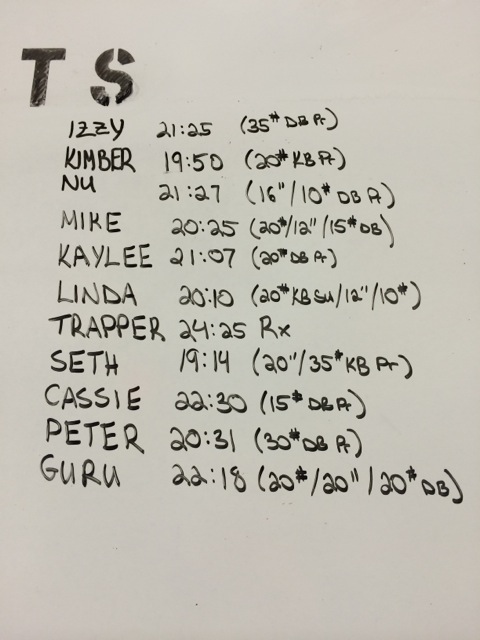 TS
IZZY 21:25 (35# DB Pr)
KIMBER 19:50 (20# KB Pr)
NU 21:27 (16"/10# DB Pr)
MIKE 20:25 (20#/12"/15# DB)
KAYLEE 21:07 (20# DB Pr)
LINDA 20:10 (20# KB SU/12"/10#)
TRAPPER 24:25 Rx
SETH 19:14 (20"/35# KB Pr)
CASSIE 22:30 (15# DB Pr)
PETER 20:31 (30# DB Pr)
GURU 22:18 (20#/20"/20# DB)